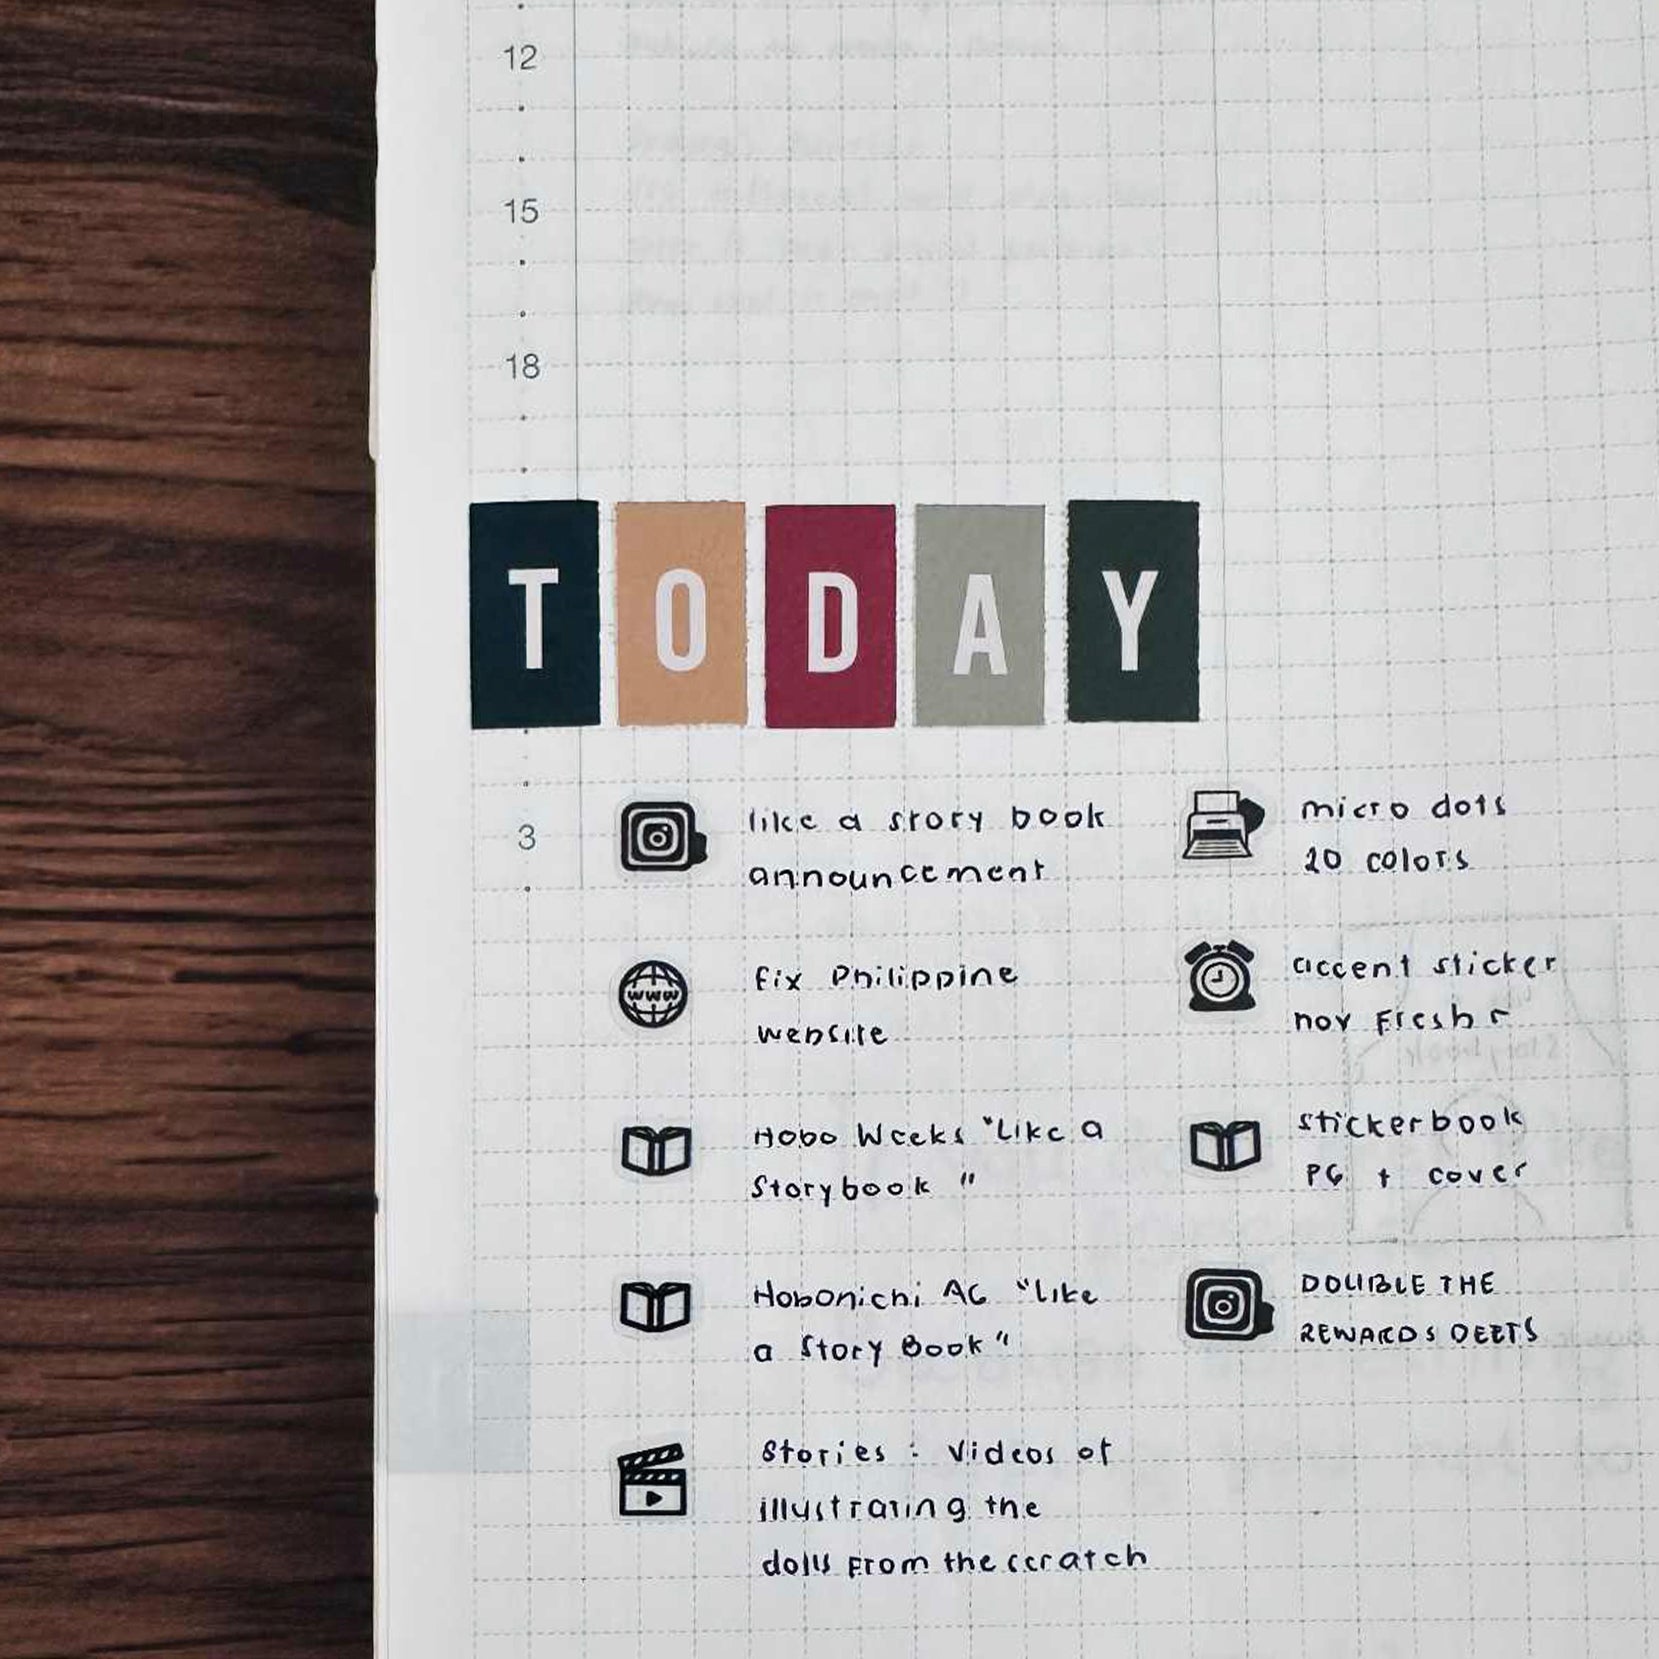 12
15
18
TODAY
3
like a story book
announcement
fix Philippine
website
Hobo Weeks "Like a
Storybook "
Hobonichi A6 "like
a Story Book"
Stories : Videos of
illustrating the
dolls from the scratch
micro dots
20 colors
accent sticker
nov Fresh r
stickerbook
PG + cover
DOUBLE THE
REWARDS DEETS
WWW